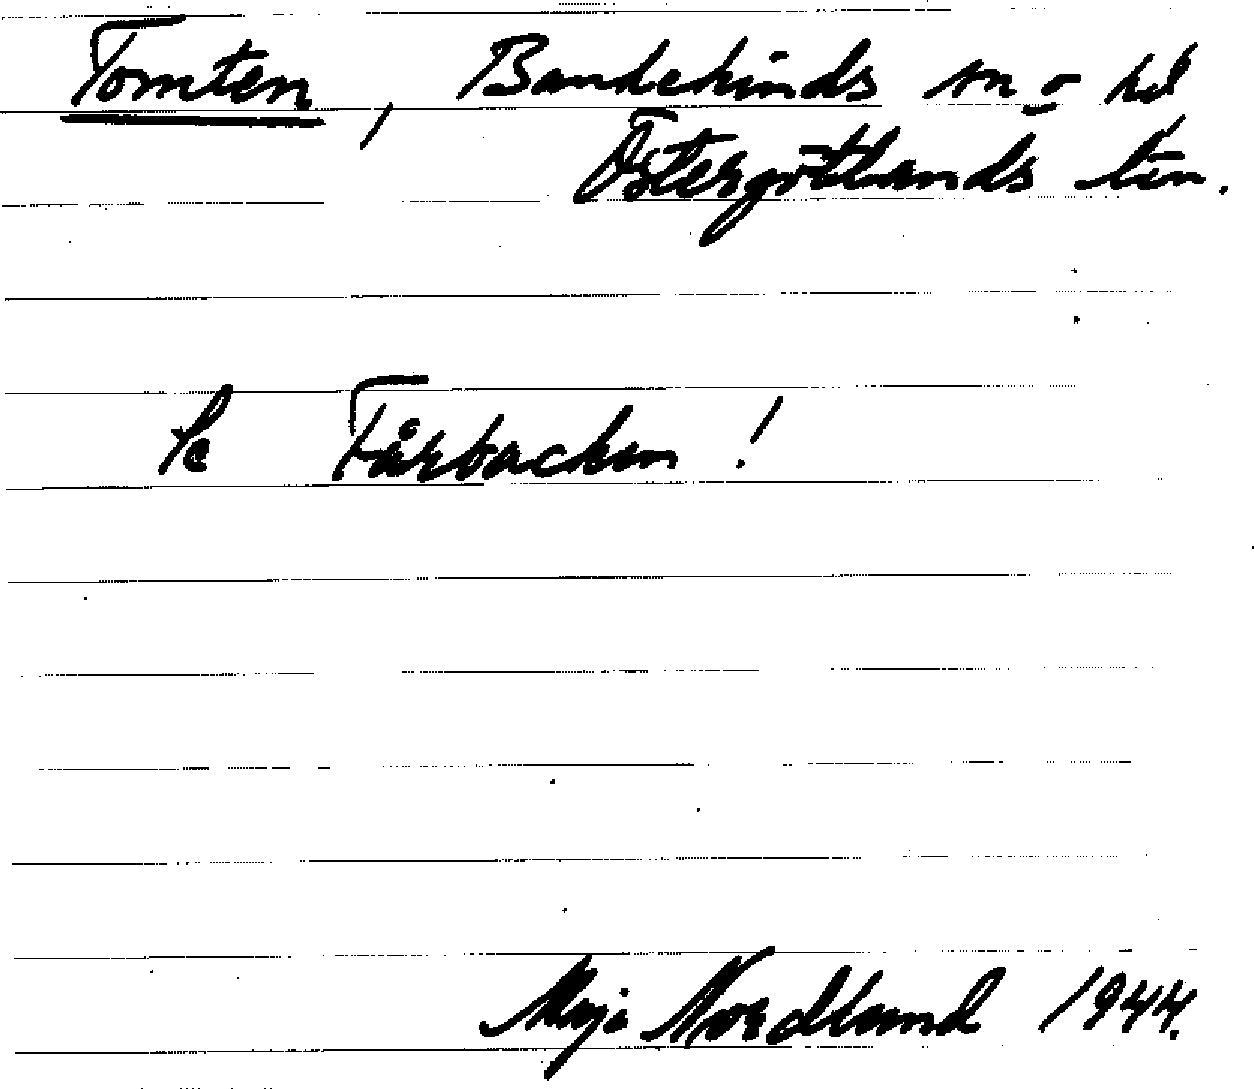 Tomten, Bankekinds sn o hd
Östergötlands län.
Se Fårbacken!
Maja Nordlund 1944.